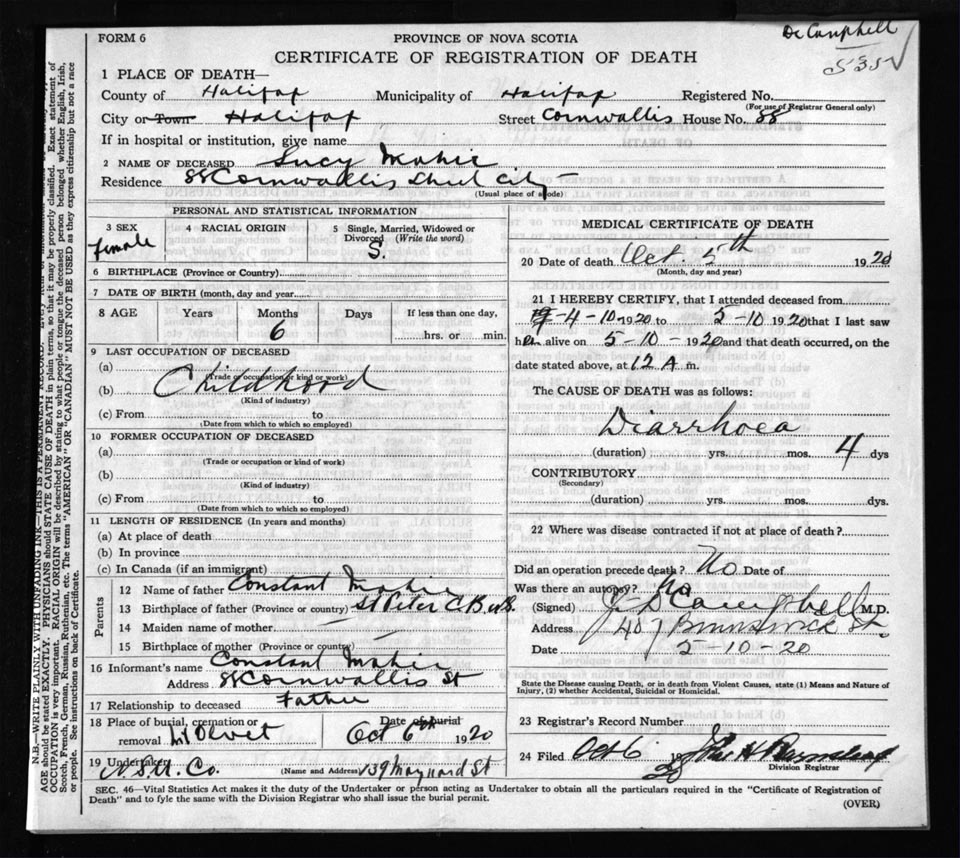 Dr Campbell
535
FORM 6
PROVINCE OF NOVA SCOTIA
CERTIFICATE OF REGISTRATION OF DEATH
1 PLACE OF DEATH—
County of Halifax Municipality of Halifax Registered No.
(For use of Registrar General only)
City or Town Halifax Street Cornwallis House No. 88
If in hospital or institution, give name
2 NAME OF DECEASED Lucy Mahie
Residence 88 Cornwallis Street City
(Usual place of abode)
PERSONAL AND STATISTICAL INFORMATION
3 SEX female
4 RACIAL ORIGIN
5 Single, Married, Widowed or Divorced (Write the word)
S.
6 BIRTHPLACE (Province or Country)
7 DATE OF BIRTH (month, day and year)
8 AGE Years Months Days If less than one day,
6 hrs. or min.
9 LAST OCCUPATION OF DECEASED
(a)
(Trade or occupation or kind of work)
(b) Childhood
(Kind of industry)
(c) From to
(Date from which to which so employed)
10 FORMER OCCUPATION OF DECEASED
(a)
(Trade or occupation or kind of work)
(b)
(Kind of industry)
(c) From to
(Date from which to which so employed)
11 LENGTH OF RESIDENCE (In years and months)
(a) At place of death
(b) In province
(c) In Canada (if an immigrant)
Parents
12 Name of father Constant Mahie
13 Birthplace of father (Province or country) St Peter C.B. N.S.
14 Maiden name of mother —
15 Birthplace of mother (Province or country)
16 Informant's name Constant Mahie
Address 88 Cornwallis St
17 Relationship to deceased Father
18 Place of burial, cremation or Date of burial
removal Mt Olivet Oct 6th 1920
19 Undertaker N.S.U. Co. (Name and Address) 139 Maynard St
MEDICAL CERTIFICATE OF DEATH
20 Date of death Oct. 5th 1920
(Month, day and year)
21 I HEREBY CERTIFY, that I attended deceased from
4-10-1920 to 5-10 1920 that I last saw
her alive on 5-10-1920 and that death occurred, on the
date stated above, at 12 A m.
The CAUSE OF DEATH was as follows:
Diarrhoea
(duration) yrs. mos. 4 dys
CONTRIBUTORY
(Secondary)
(duration) yrs. mos. dys.
22 Where was disease contracted if not at place of death?
Did an operation precede death? No Date of
Was there an autopsy? No
(Signed) Campbell M.D.
Address 407 Brunswick St.
Date 5-10-20
State the Disease causing Death, or in death from Violent Causes, state (1) Means and Nature of
Injury, (2) whether Accidental, Suicidal or Homicidal.
23 Registrar's Record Number
24 Filed Oct 6 1920 John H
Division Registrar
SEC. 46—Vital Statistics Act makes it the duty of the Undertaker or person acting as Undertaker to obtain all the particulars required in the "Certificate of Registration of
Death" and to fyle the same with the Division Registrar who shall issue the burial permit.
(OVER)
N.B.—WRITE PLAINLY WITH UNFADING INK—THIS IS A PERMANENT RECORD.
AGE should be stated EXACTLY. PHYSICIANS should STATE CAUSE OF DEATH in plain terms, so that it may be properly classified. Exact statement of
OCCUPATION is very important. RACIAL ORIGIN will be described by stating to what people or tongue the deceased person belonged whether English, Irish,
Scotch, French, German, Russian, Ruthenian, etc. The terms "AMERICAN" OR "CANADIAN" MUST NOT BE USED as they express citizenship but not a race
or people. See instructions on back of Certificate.